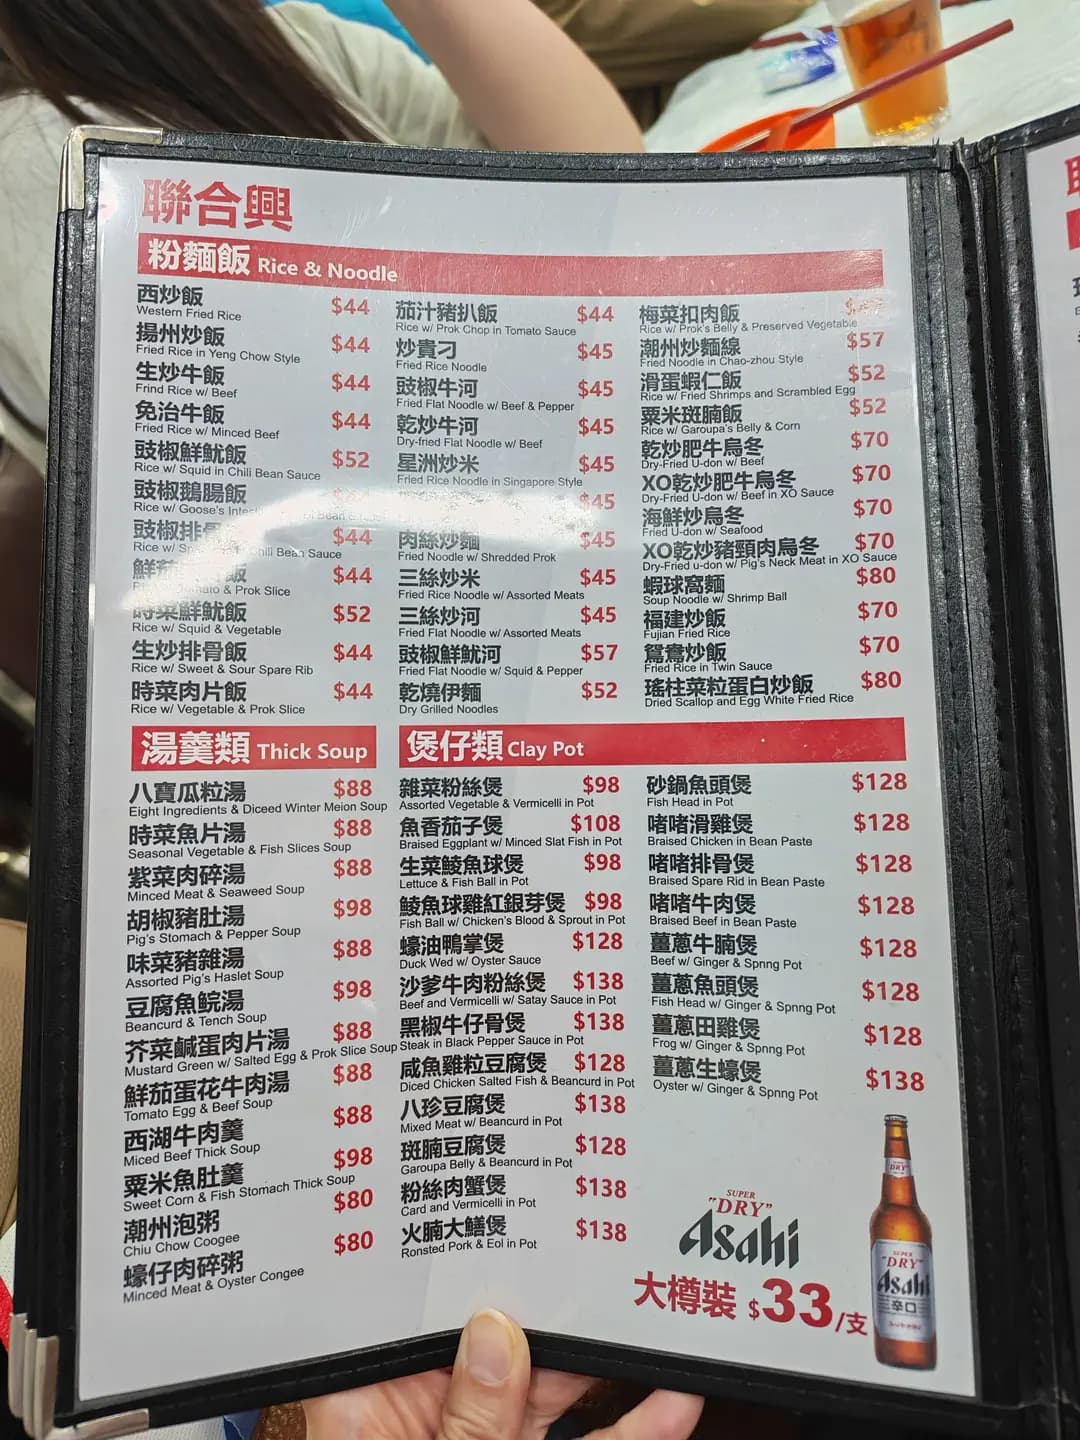 聯合興
粉麵飯 Rice & Noodle
西炒飯 $44
Western Fried Rice
揚州炒飯 $44
Fried Rice in Yeng Chow Style
生炒牛飯 $44
Frind Rice w/ Beef
免治牛飯 $44
Fried Rice w/ Minced Beef
豉椒鮮魷飯 $52
Rice w/ Squid in Chili Bean Sauce
豉椒鵝腸飯
Rice w/ Goose's
豉椒排 $44
Rice w/ Chili Bean Sauce
鮮茄 飯 $44
& Prok Slice
時菜鮮魷飯 $52
Rice w/ Squid & Vegetable
生炒排骨飯 $44
Rice w/ Sweet & Sour Spare Rib
時菜肉片飯 $44
Rice w/ Vegetable & Prok Slice
茄汁豬扒飯 $44
Rice w/ Prok Chop in Tomato Sauce
炒貴刁 $45
Fried Rice Noodle
豉椒牛河 $45
Fried Flat Noodle w/ Beef & Pepper
乾炒牛河 $45
Dry-fried Flat Noodle w/ Beef
星洲炒米 $45
Fried Rice Noodle in Singapore Style
$45
肉絲炒麵 $45
Fried Noodle w/ Shredded Prok
三絲炒米 $45
Fried Rice Noodle w/ Assorted Meats
三絲炒河 $45
Fried Flat Noodle w/ Assorted Meats
豉椒鮮魷河 $57
Fried Flat Noodle w/ Squid & Pepper
乾燒伊麵 $52
Dry Grilled Noodles
梅菜扣肉飯
Rice w/ Prok's Belly & Preserved Vegetable
潮州炒麵線 $57
Fried Noodle in Chao-zhou Style
滑蛋蝦仁飯 $52
Rice w/ Fried Shrimps and Scrambled Egg
粟米斑腩飯 $52
Rice w/ Garoupa's Belly & Corn
乾炒肥牛烏冬 $70
Dry-Fried U-don w/ Beef
XO乾炒肥牛烏冬 $70
Dry-Fried U-don w/ Beef in XO Sauce
海鮮炒烏冬 $70
Fried U-don w/ Seafood
XO乾炒豬頸肉烏冬 $70
Dry-Fried u-don w/ Pig's Neck Meat in XO Sauce
蝦球窩麵 $80
Soup Noodle w/ Shrimp Ball
福建炒飯 $70
Fujian Fried Rice
鴛鴦炒飯 $70
Fried Rice in Twin Sauce
瑤柱菜粒蛋白炒飯 $80
Dried Scallop and Egg White Fried Rice
湯羹類 Thick Soup
八寶瓜粒湯 $88
Eight Ingredients & Diceed Winter Meion Soup
時菜魚片湯 $88
Seasonal Vegetable & Fish Slices Soup
紫菜肉碎湯 $88
Minced Meat & Seaweed Soup
胡椒豬肚湯 $98
Pig's Stomach & Pepper Soup
味菜豬雜湯 $88
Assorted Pig's Haslet Soup
豆腐魚鯇湯 $98
Beancurd & Tench Soup
芥菜鹹蛋肉片湯 $88
Mustard Green w/ Salted Egg & Prok Slice Soup
鮮茄蛋花牛肉湯 $88
Tomato Egg & Beef Soup
西湖牛肉羹 $88
Miced Beef Thick Soup
粟米魚肚羹 $98
Sweet Corn & Fish Stomach Thick Soup
潮州泡粥 $80
Chiu Chow Coogee
蠔仔肉碎粥 $80
Minced Meat & Oyster Congee
煲仔類 Clay Pot
雜菜粉絲煲 $98
Assorted Vegetable & Vermicelli in Pot
魚香茄子煲 $108
Braised Eggplant w/ Minced Slat Fish in Pot
生菜鯪魚球煲 $98
Lettuce & Fish Ball in Pot
鯪魚球雞紅銀芽煲 $98
Fish Ball w/ Chicken's Blood & Sprout in Pot
蠔油鴨掌煲 $128
Duck Wed w/ Oyster Sauce
沙爹牛肉粉絲煲 $138
Beef and Vermicelli w/ Satay Sauce in Pot
黑椒牛仔骨煲 $138
Steak in Black Pepper Sauce in Pot
咸魚雞粒豆腐煲 $128
Diced Chicken Salted Fish & Beancurd in Pot
八珍豆腐煲 $138
Mixed Meat w/ Beancurd in Pot
斑腩豆腐煲 $128
Garoupa Belly & Beancurd in Pot
粉絲肉蟹煲 $138
Card and Vermicelli in Pot
火腩大鱔煲 $138
Ronsted Pork & Eol in Pot
砂鍋魚頭煲 $128
Fish Head in Pot
啫啫滑雞煲 $128
Braised Chicken in Bean Paste
啫啫排骨煲 $128
Braised Spare Rid in Bean Paste
啫啫牛肉煲 $128
Braised Beef in Bean Paste
薑蔥牛腩煲 $128
Beef w/ Ginger & Spnng Pot
薑蔥魚頭煲 $128
Fish Head w/ Ginger & Spnng Pot
薑蔥田雞煲 $128
Frog w/ Ginger & Spnng Pot
薑蔥生蠔煲 $138
Oyster w/ Ginger & Spnng Pot
SUPER
"DRY"
Asahi
大樽裝 $33/支
DRY
SUPER
"DRY"
Asahi
辛口